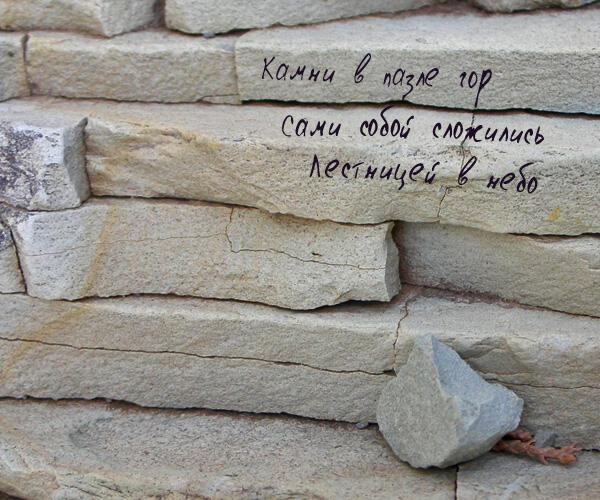 Камни в пазле гор
Сами собой сложились
Лестницей в небо